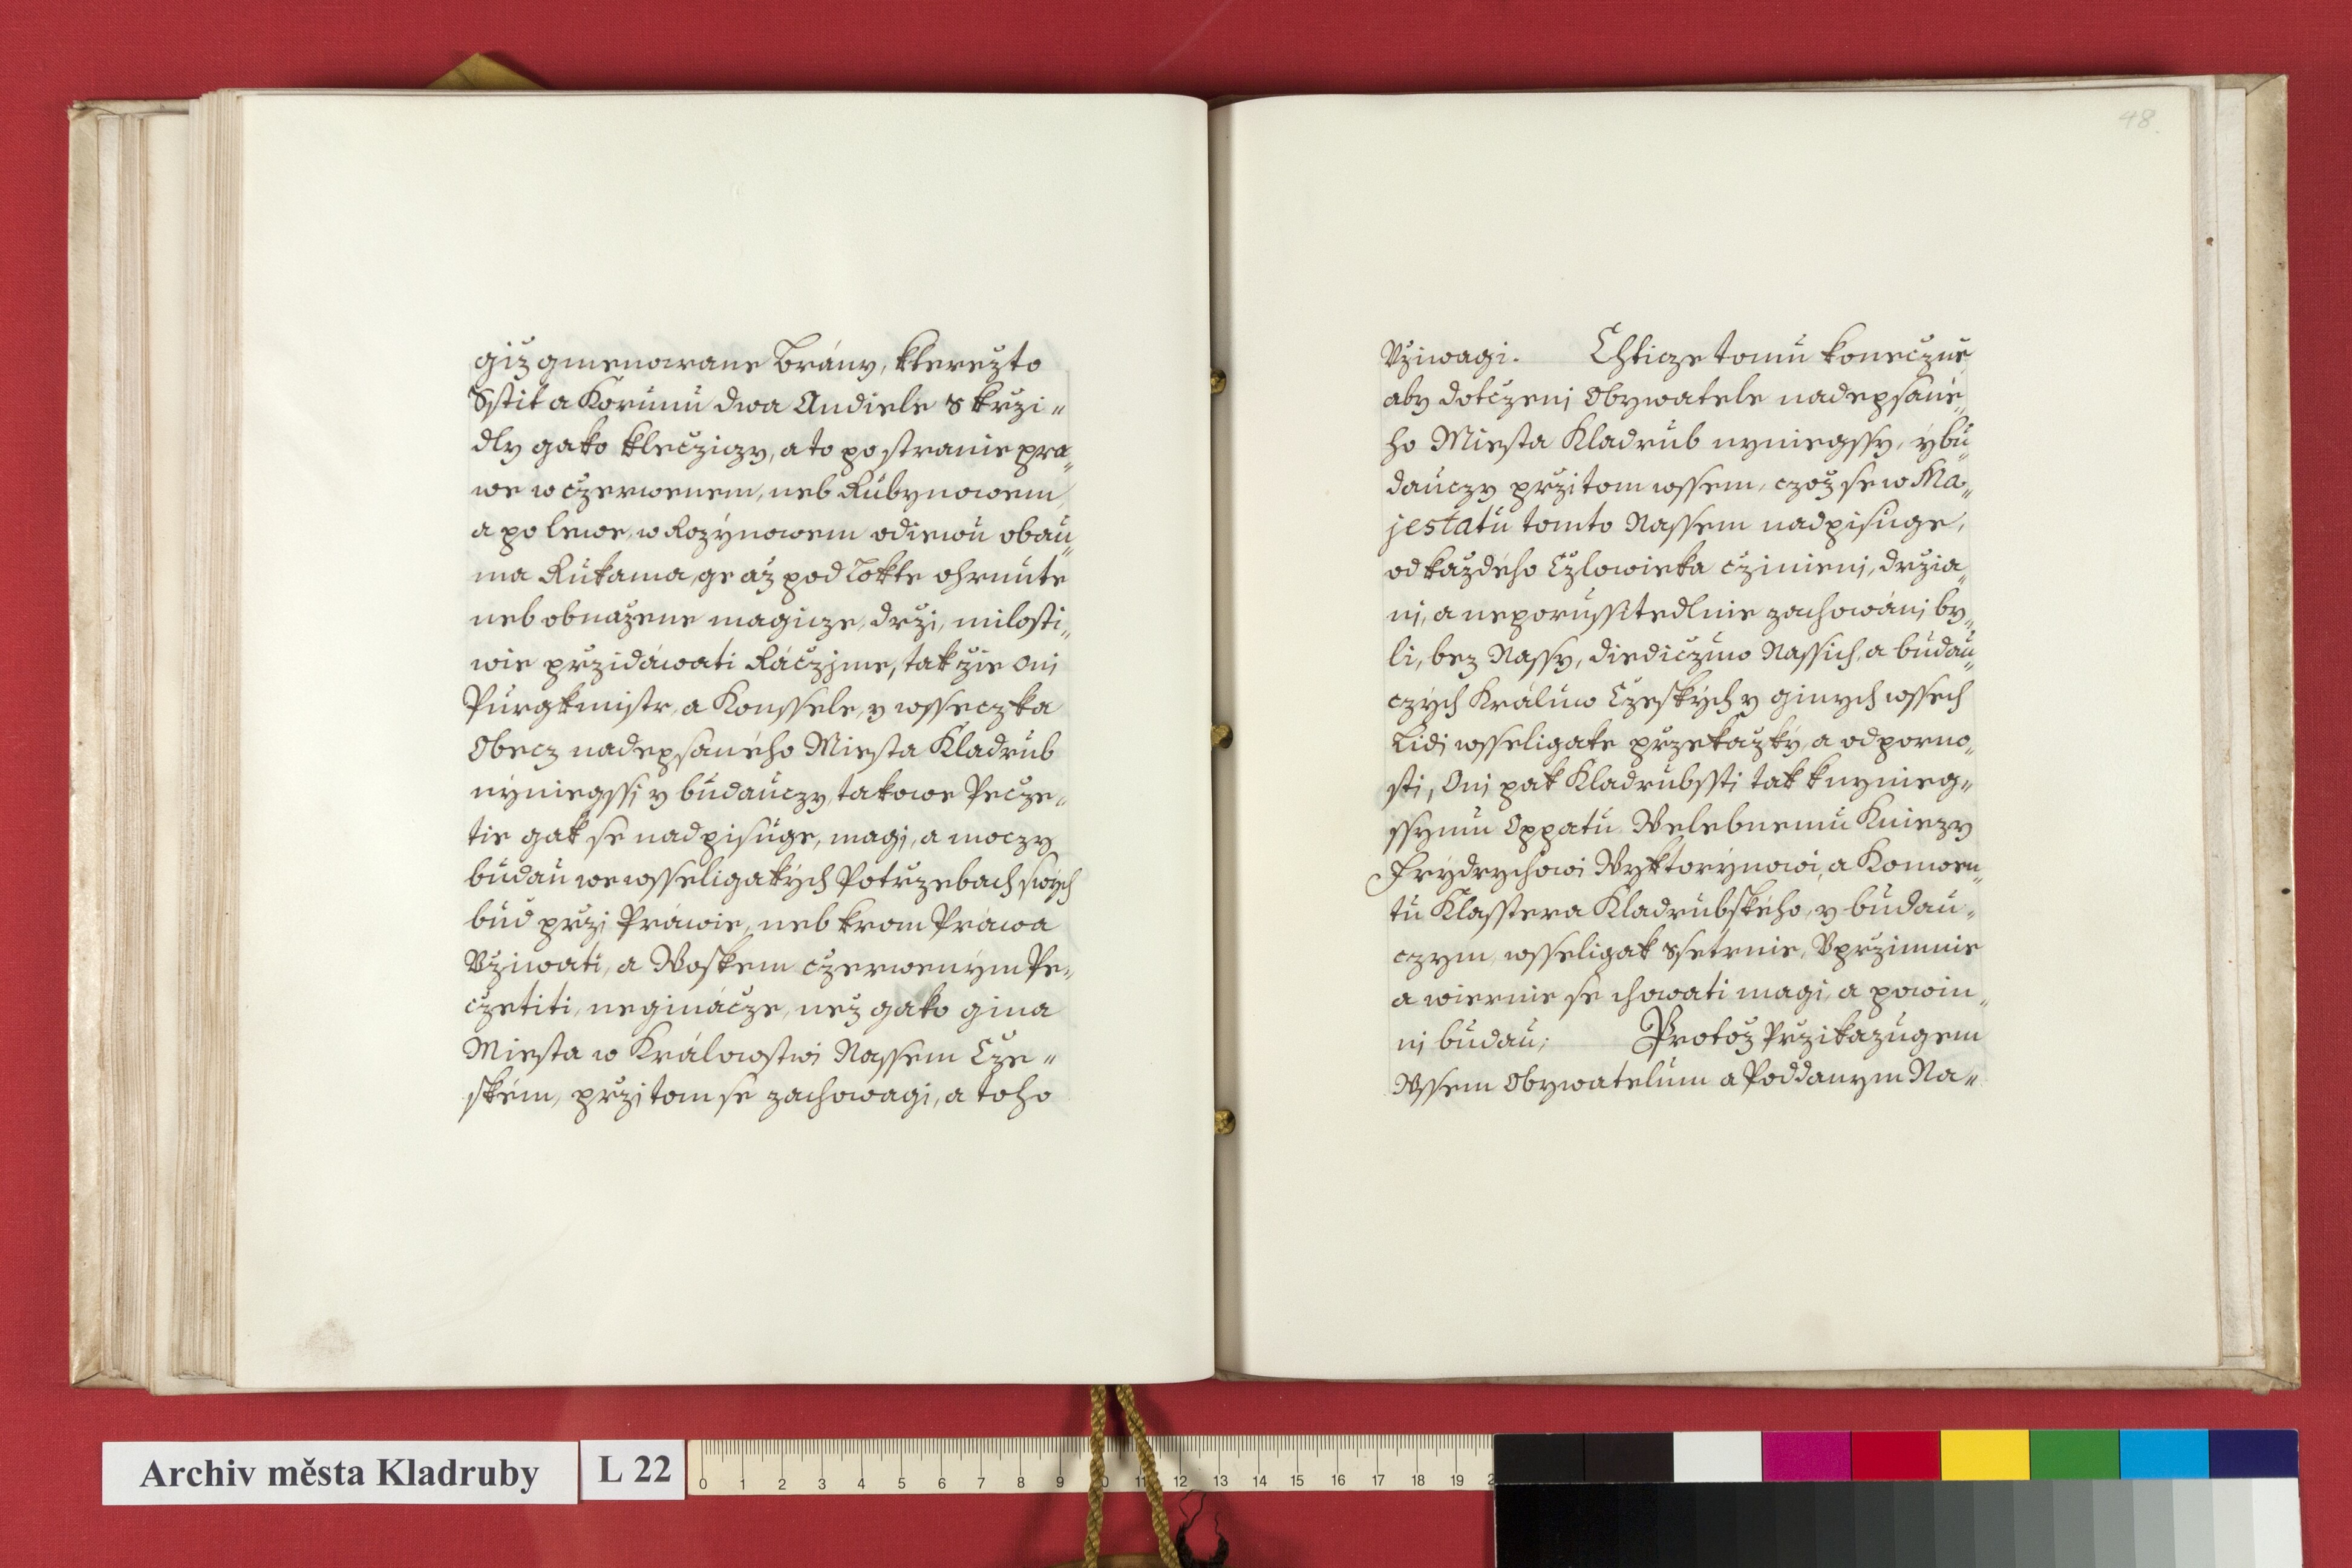 giz gmenowane Brány, kterežto
Sstit a Korunu dwa Andiele s krzi„
dly gako klecziczy, a to po stranie pra„
we w czerwenem, neb Rubynowem,
a po lewe, w Rozýnowem odiewu obau„
ma Rukama, ge až pod lokte ohrnute
neb obnažene magicze, drži, milosti„
wie przidáwati Ráczjme, tak žie oni
Purgkmistr, a Konssele, y wsseczka
Obecz nadepsaného Miesta Kladrub
nýniegssi y budauczy, takowe Pecze„
tie gak se nadpisuge, magj, a moczy
budau we wsseligakých Potrzebach swých
bud przi Práwie, neb krom Práwa
Vžiwati, a Woskem czerwenými Pe„
czetiti,neginácze, než gako gina
Miesta w Králowstwi Nassem Cze„
ském, przi tom se zachowagi, a toho
48.
Vžiwagi. Chticze tomu koneczně,
aby dotczeni Obywatele nadepsané„
ho Miesta Kladrub nyniegssy, ýbu„
dauczy przitom wssem, czož se w Ma„
jestatu tomto Nassem nadpisuge,
od každého Czlowieka czinieni, držia„
ni, a neporussitedlnie zachowáni by„
li, bez Nassy, diediczuw Nassich, a budau„
czých Králuw Czeských y giných wssech
Lidi wsseligake przekažký, a odporno„
sti, Oni pak Kladrubssti tak k nynieg„
ssymu Oppatu Welebnemu Kniezy
Frýdrychowi Wyktorýnowi, a Konwen„
tu Klasstera Kladrubského, y budau„
czým, wsseligak ssetrnie, Vprzimnie
a wiernie se chowati magi, a powin„
ni budau; Protož Przikazugem
Wssem Obywatelum a Poddanym Na„
Archiv města Kladruby
L 22
0 1 2 3 4 5 6 7 8 9 10 11 12 13 14 15 16 17 18 19 2